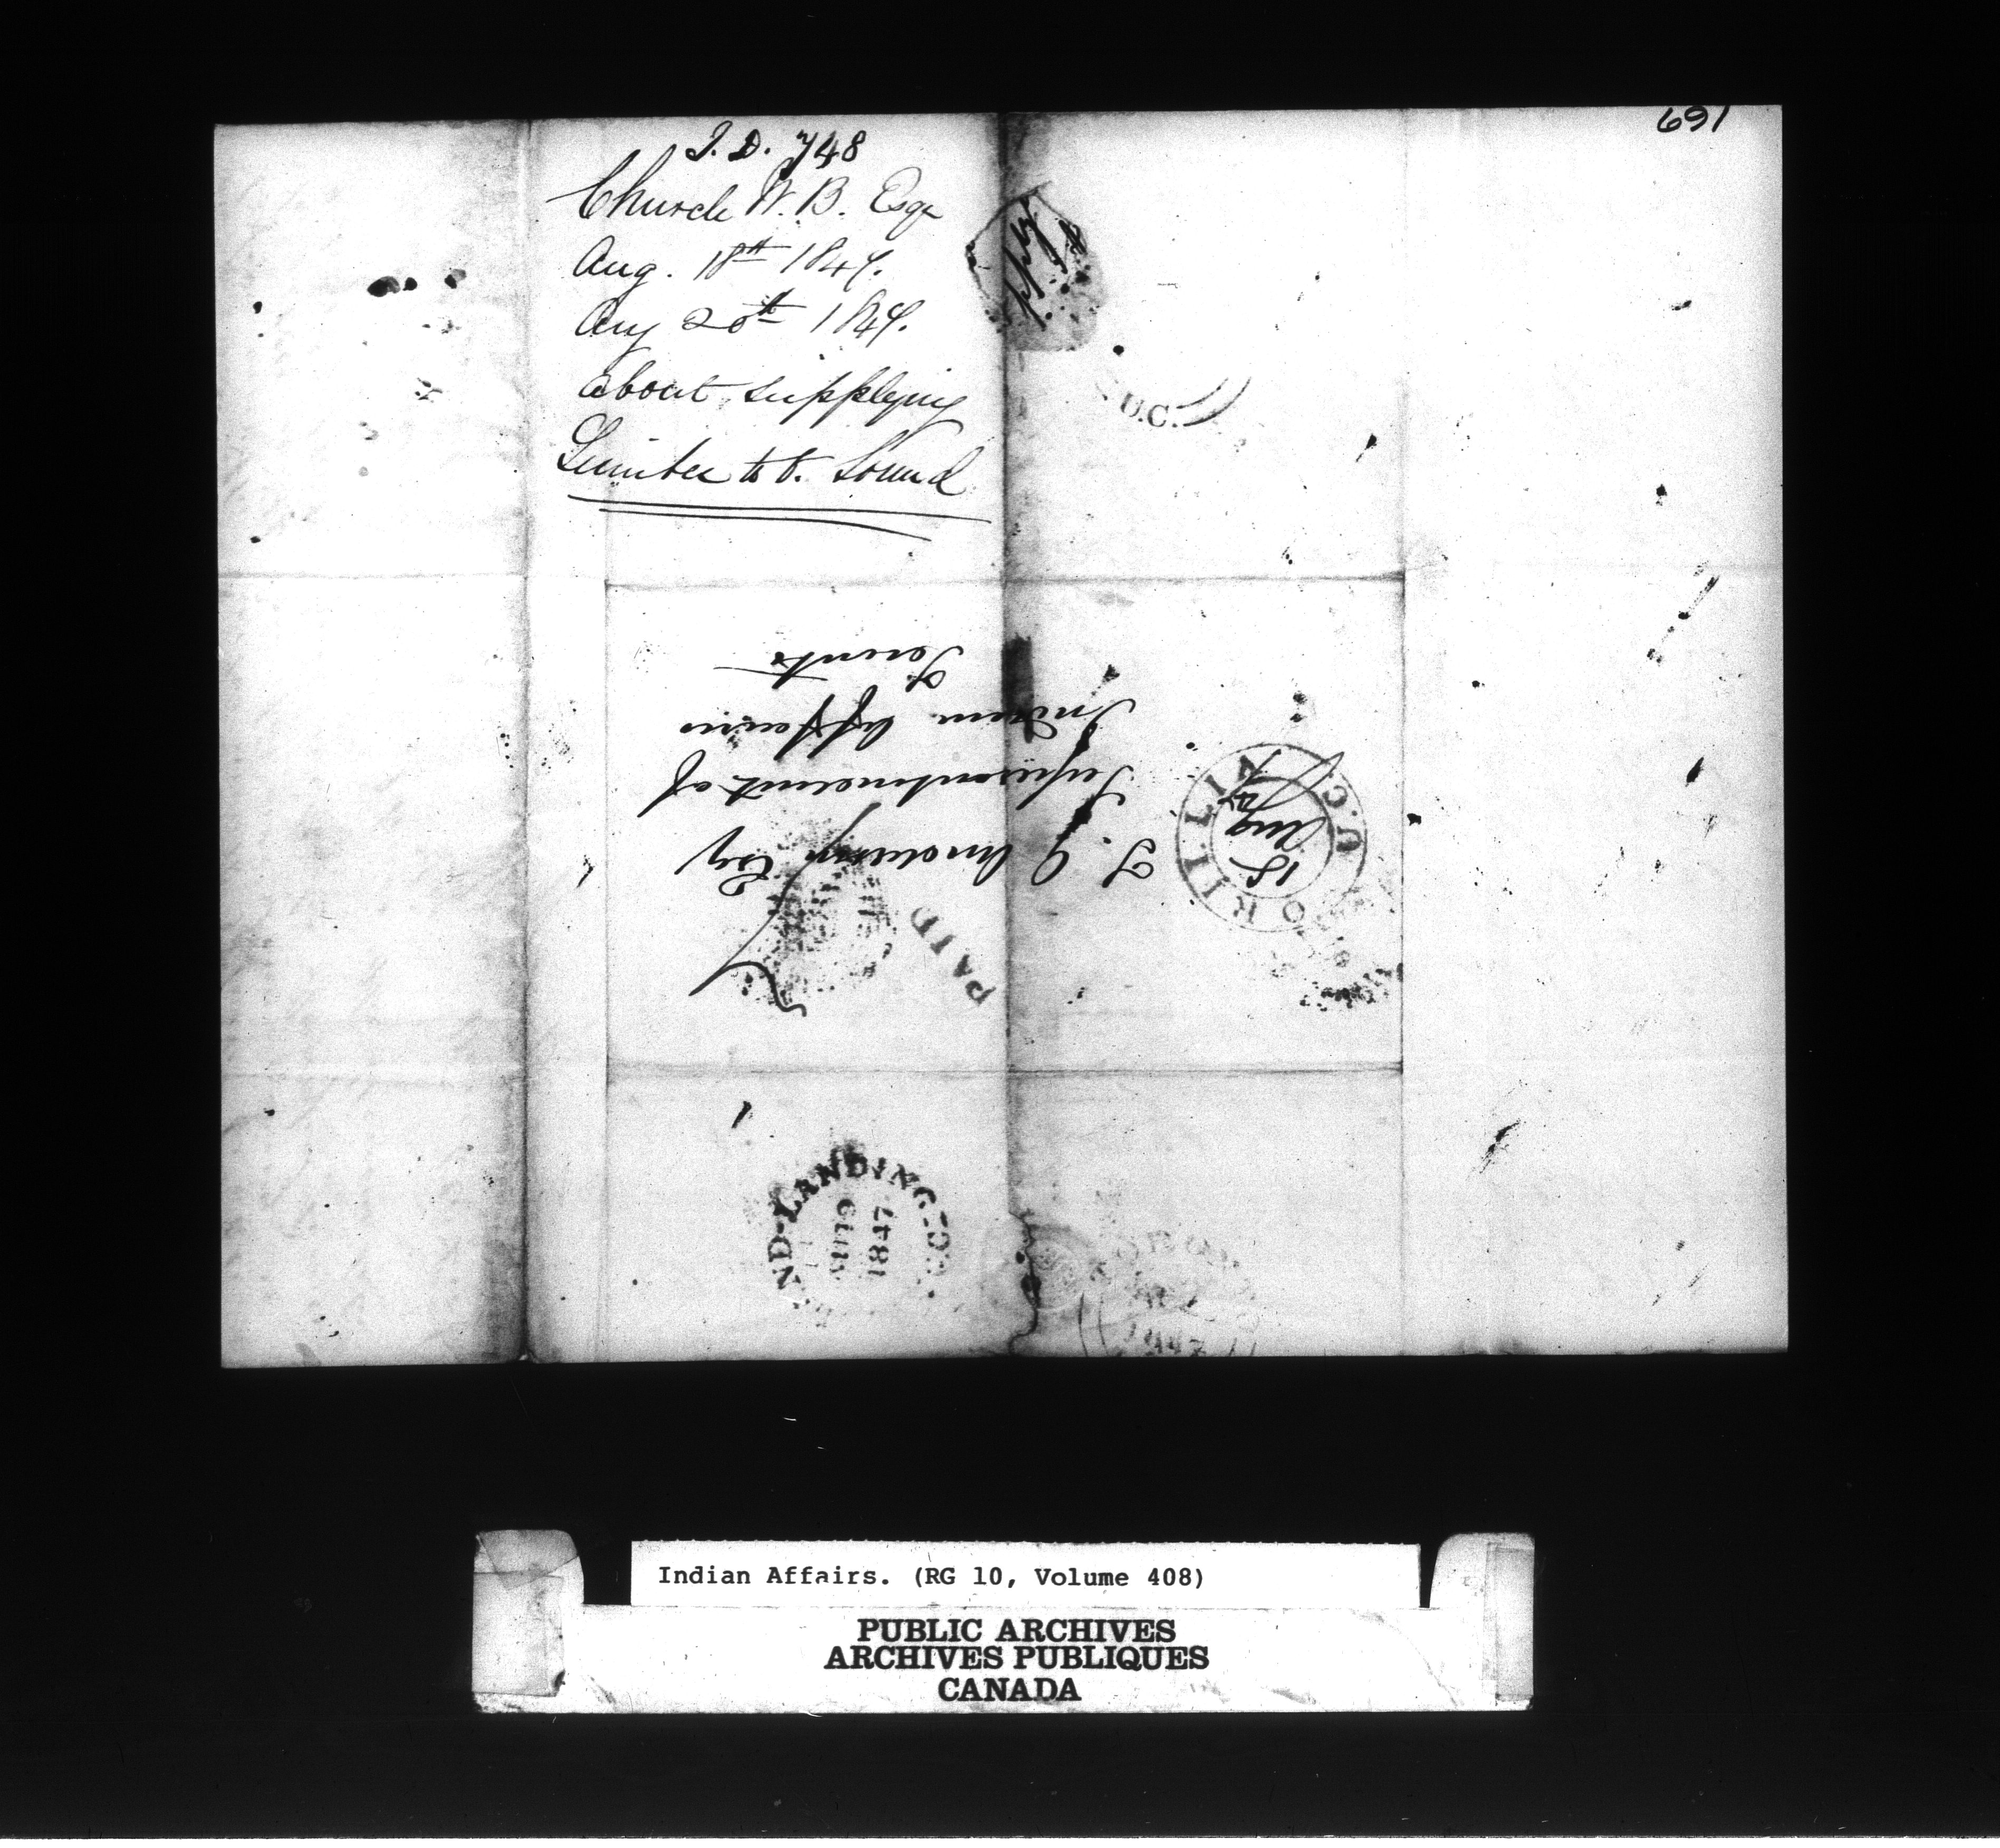 691
I. D. 748
Church W. B. Esqr
Aug. 18th 1847.
Aug 20th 1847.
about supplying
Lumber to O. Sound
U.C.
T. G. Anderson Esq
Superintendent of
Indian Affairs
Toronto
PAID
ORILLIA U.C.
18
Aug
47
ND-LANDING-
AU19
1847
1847
Indian Affairs. (RG 10, Volume 408)
PUBLIC ARCHIVES
ARCHIVES PUBLIQUES
CANADA